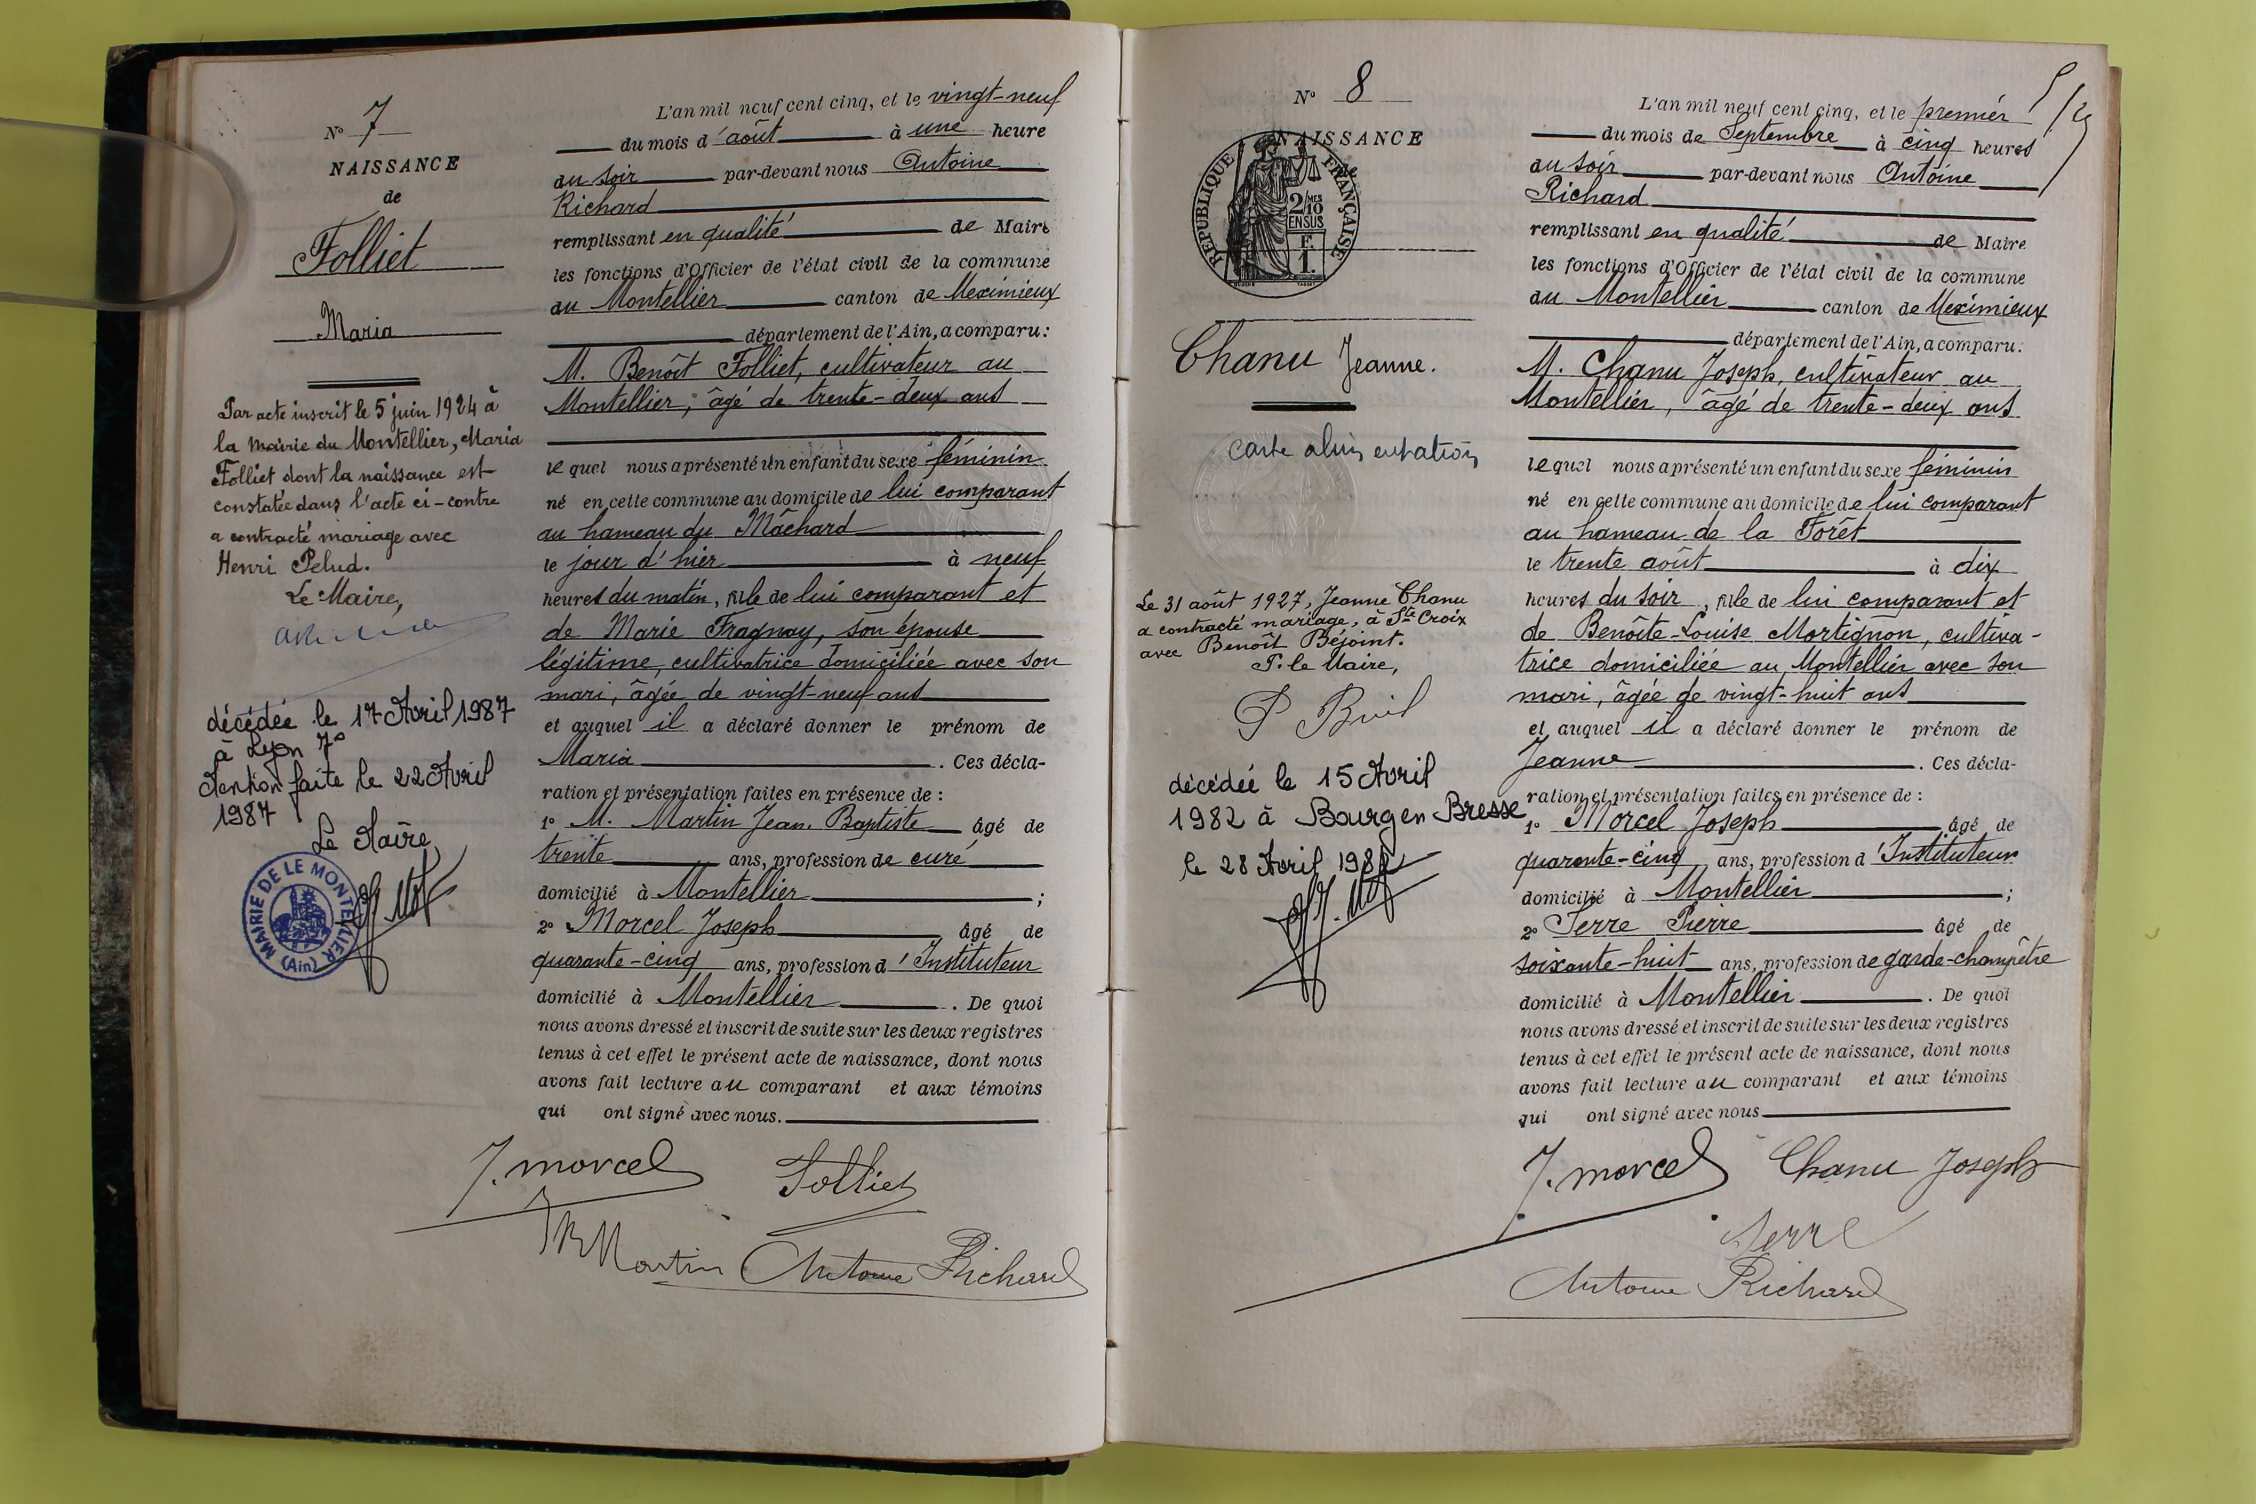 N° 7
NAISSANCE
de
Folliet
Maria
Par acte inscrit le 5 juin 1924 à
la mairie du Montellier, Maria
Folliet dont la naissance est
constatée dans l'acte ci-contre
a contracté mariage avec
Henri Pelud.
Le Maire,
décédée le 17 Avril 1987
à Lyon 7°
Mention faite le 22 Avril
1987
Le Maire,
MAIRIE DE LE MONTELLIER (Ain)
L'an mil neuf cent cinq, et le vingt-neuf
du mois d'août à une heure
du soir par-devant nous Antoine
Richard
remplissant en qualité de Maire
les fonctions d'Officier de l'état civil de la commune
du Montellier canton de Meximieux
département de l'Ain, a comparu:
M. Benoît Folliet, cultivateur au
Montellier, âgé de trente-deux ans
lequel nous a présenté un enfant du sexe féminin
né en cette commune au domicile de lui comparant
au hameau du Mâchard
le jour d'hier à neuf
heures du matin, fille de lui comparant et
de Marie Fragnay, son épouse
légitime, cultivatrice domiciliée avec son
mari, âgée de vingt-neuf ans
et auquel il a déclaré donner le prénom de
Maria . Ces décla-
ration et présentation faites en présence de :
1° M. Martin Jean-Baptiste âgé de
trente ans, profession de curé
domicilié à Montellier ;
2° Morcel Joseph âgé de
quarante-cinq ans, profession d'Instituteur
domicilié à Montellier . De quoi
nous avons dressé et inscrit de suite sur les deux registres
tenus à cet effet le présent acte de naissance, dont nous
avons fait lecture au comparant et aux témoins
qui ont signé avec nous.
J. morcel Folliet
JB Martin Antoine Richard
N° 8
NAISSANCE
de
RÉPUBLIQUE FRANÇAISE
2/10 MES
EN SUS
F.
1.
Chanu Jeanne.
carte alimentation
Le 31 août 1927, Jeanne Chanu
a contracté mariage, à Ste Croix
avec Benoît Béjoint.
P. le Maire,
décédée le 15 Avril
1982 à Bourg en Bresse
le 28 Avril 1982
L'an mil neuf cent cinq, et le premier
du mois de Septembre à cinq heures
du soir par-devant nous Antoine
Richard
remplissant en qualité de Maire
les fonctions d'Officier de l'état civil de la commune
du Montellier canton de Meximieux
département de l'Ain, a comparu:
M. Chanu Joseph, cultivateur au
Montellier, âgé de trente-deux ans
lequel nous a présenté un enfant du sexe féminin
né en cette commune au domicile de lui comparant
au hameau de la Forêt
le trente août à dix
heures du soir, fille de lui comparant et
de Benoîte-Louise Mortignon, cultiva-
trice domiciliée au Montellier avec son
mari, âgée de vingt-huit ans
et auquel il a déclaré donner le prénom de
Jeanne . Ces décla-
ration et présentation faites en présence de :
1° Morcel Joseph âgé de
quarante-cinq ans, profession d'Instituteur
domicilié à Montellier ;
2° Serre Pierre âgé de
soixante-huit ans, profession de garde-champêtre
domicilié à Montellier . De quoi
nous avons dressé et inscrit de suite sur les deux registres
tenus à cet effet le présent acte de naissance, dont nous
avons fait lecture au comparant et aux témoins
qui ont signé avec nous
J. morcel Chanu Joseph
Serre
Antoine Richard